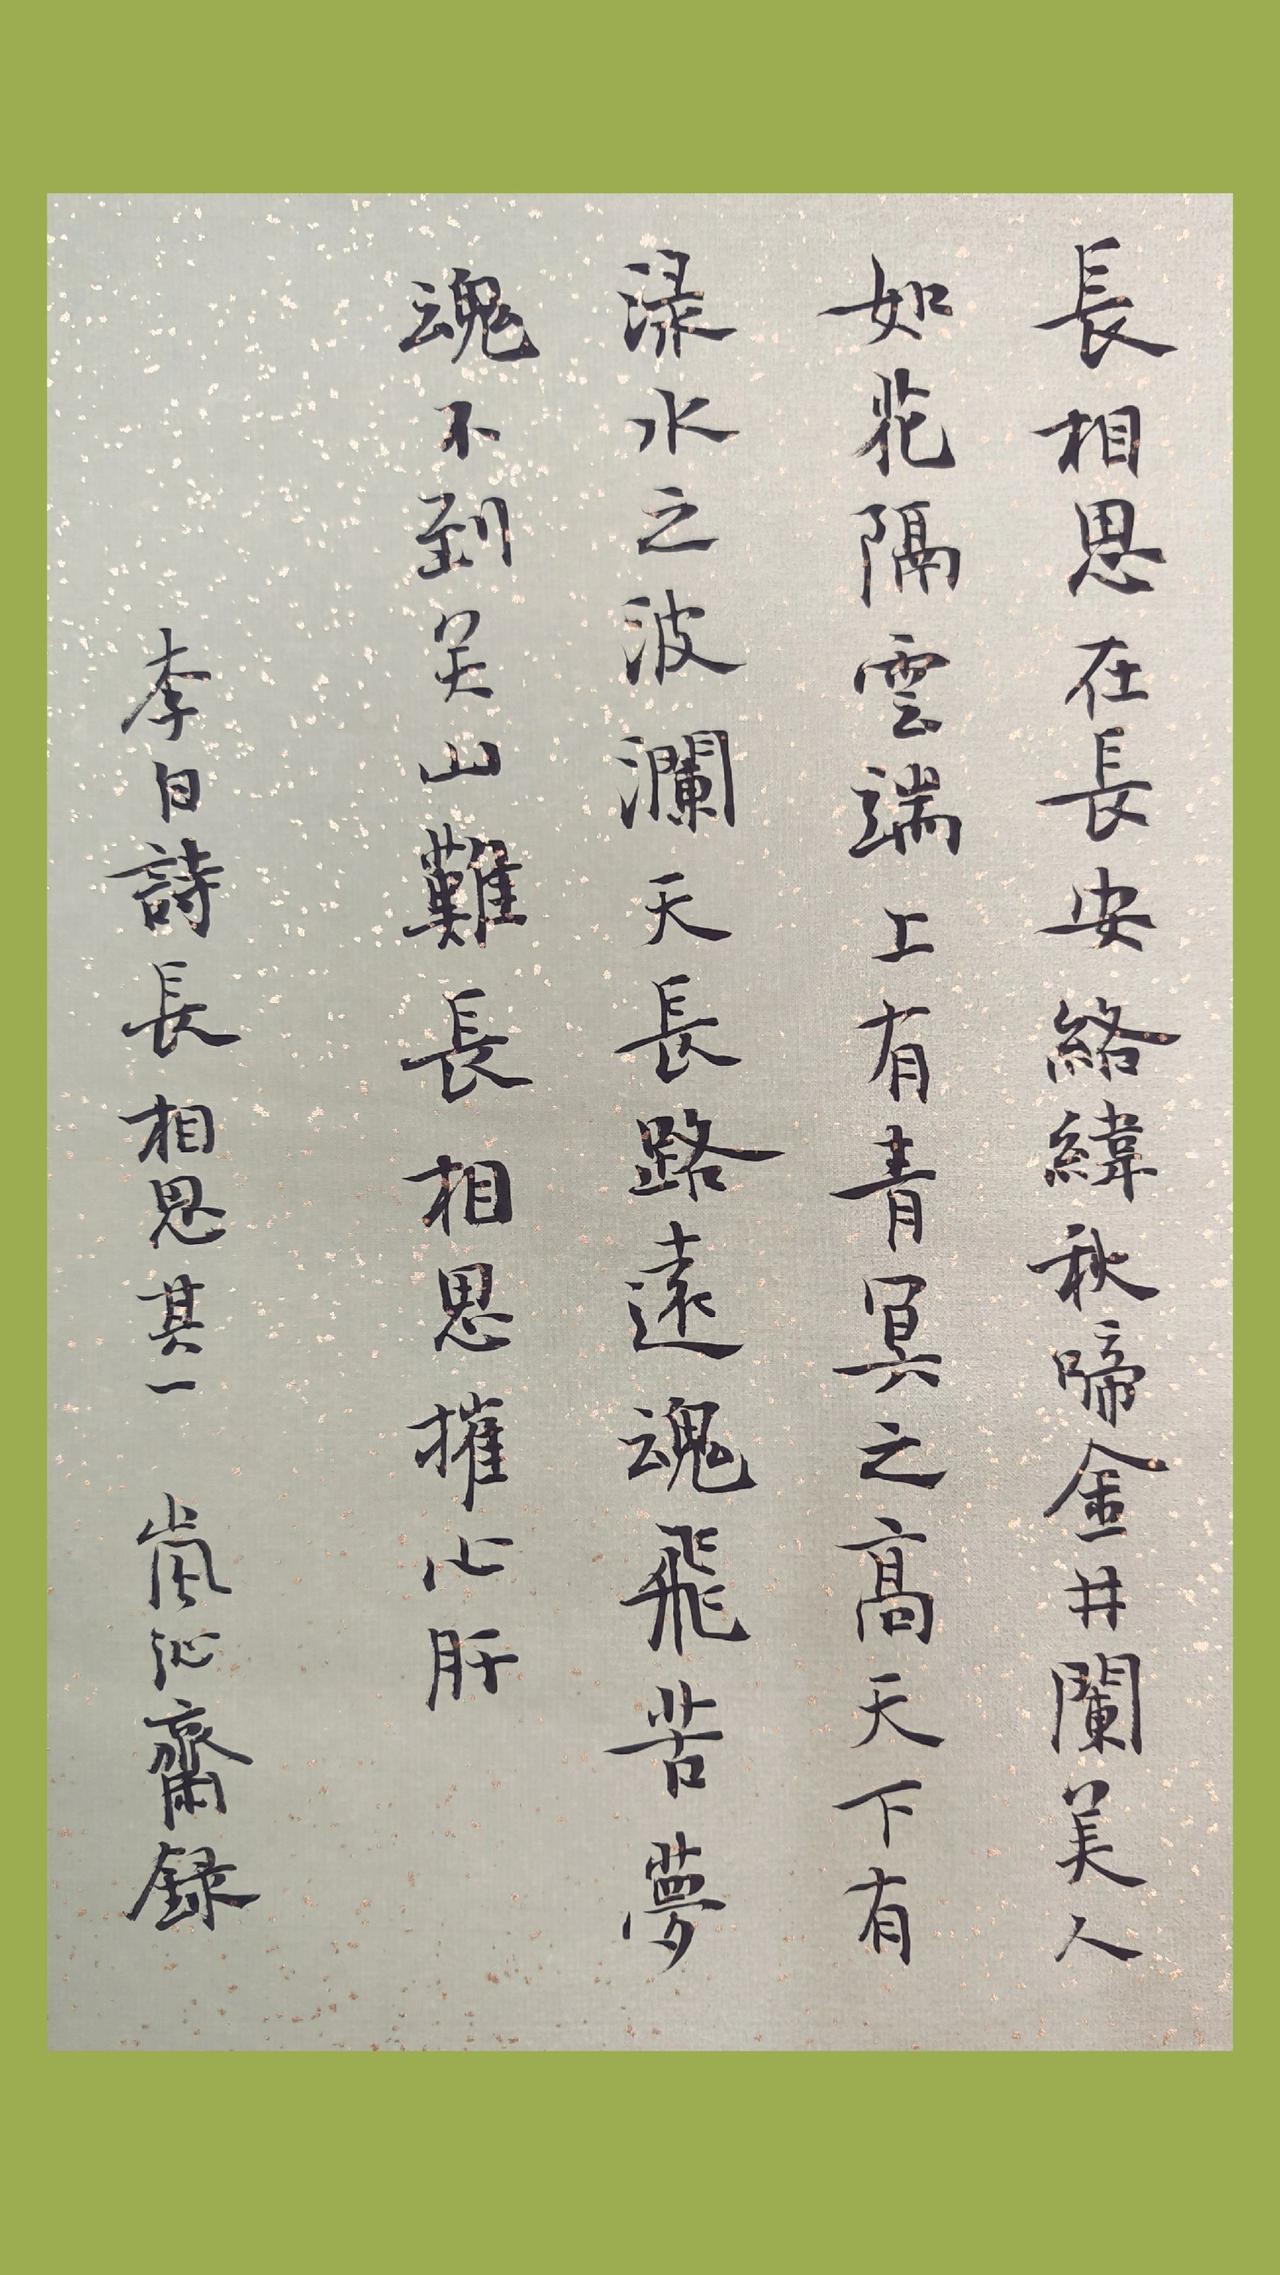 長相思在長安絡緯秋啼金井闌美人
如花隔雲端上有青冥之高天下有
渌水之波瀾天長路遠魂飛苦夢
魂不到关山難長相思摧心肝
李白詩長相思其一 嵐沁齋録